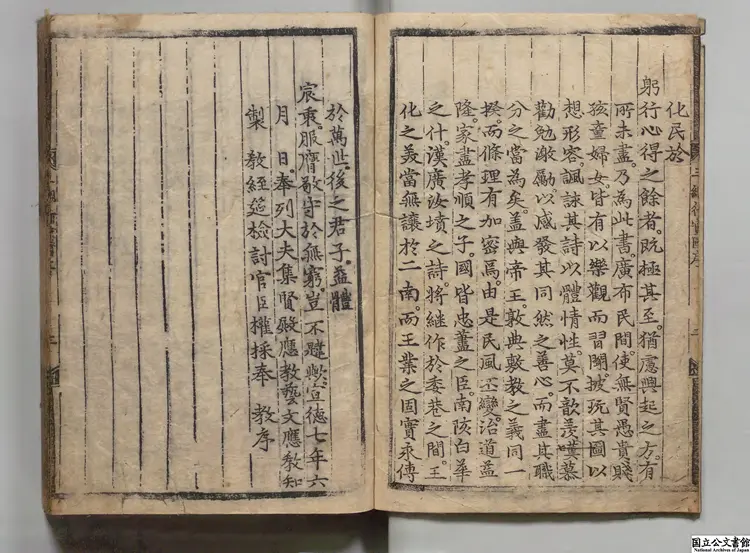 化民於
躬行心得之餘者。旣極其至。猶慮興起之方。有
所未盡。乃爲此書。廣布民間。使無賢愚貴賤
孩童婦女。皆有以樂觀而習聞。披玩其圖以
想形容。諷詠其詩以體情性。莫不歆羨嘆慕
勸勉激勵。以感發其同然之善心。而盡其職
分之當爲矣。盖與帝王。敦典敷教之義同一
揆。而條理有加密焉。由是民風丕變。治道益
隆。家盡孝順之子。國皆忠藎之臣。南陔白華
之什。漢廣汝墳之詩。將繼作於委巷之間。王
化之美當無讓於二南。而王業之固實永傳
於萬世。後之君子。益體
宸衷。服膺敬守於無窮。豈不韙歟。宣德七年六
月 日。奉列大夫集賢殿應教藝文應教知
製 教經筵檢討官臣權採奉 教序
国立公文書館
National Archives of Japan